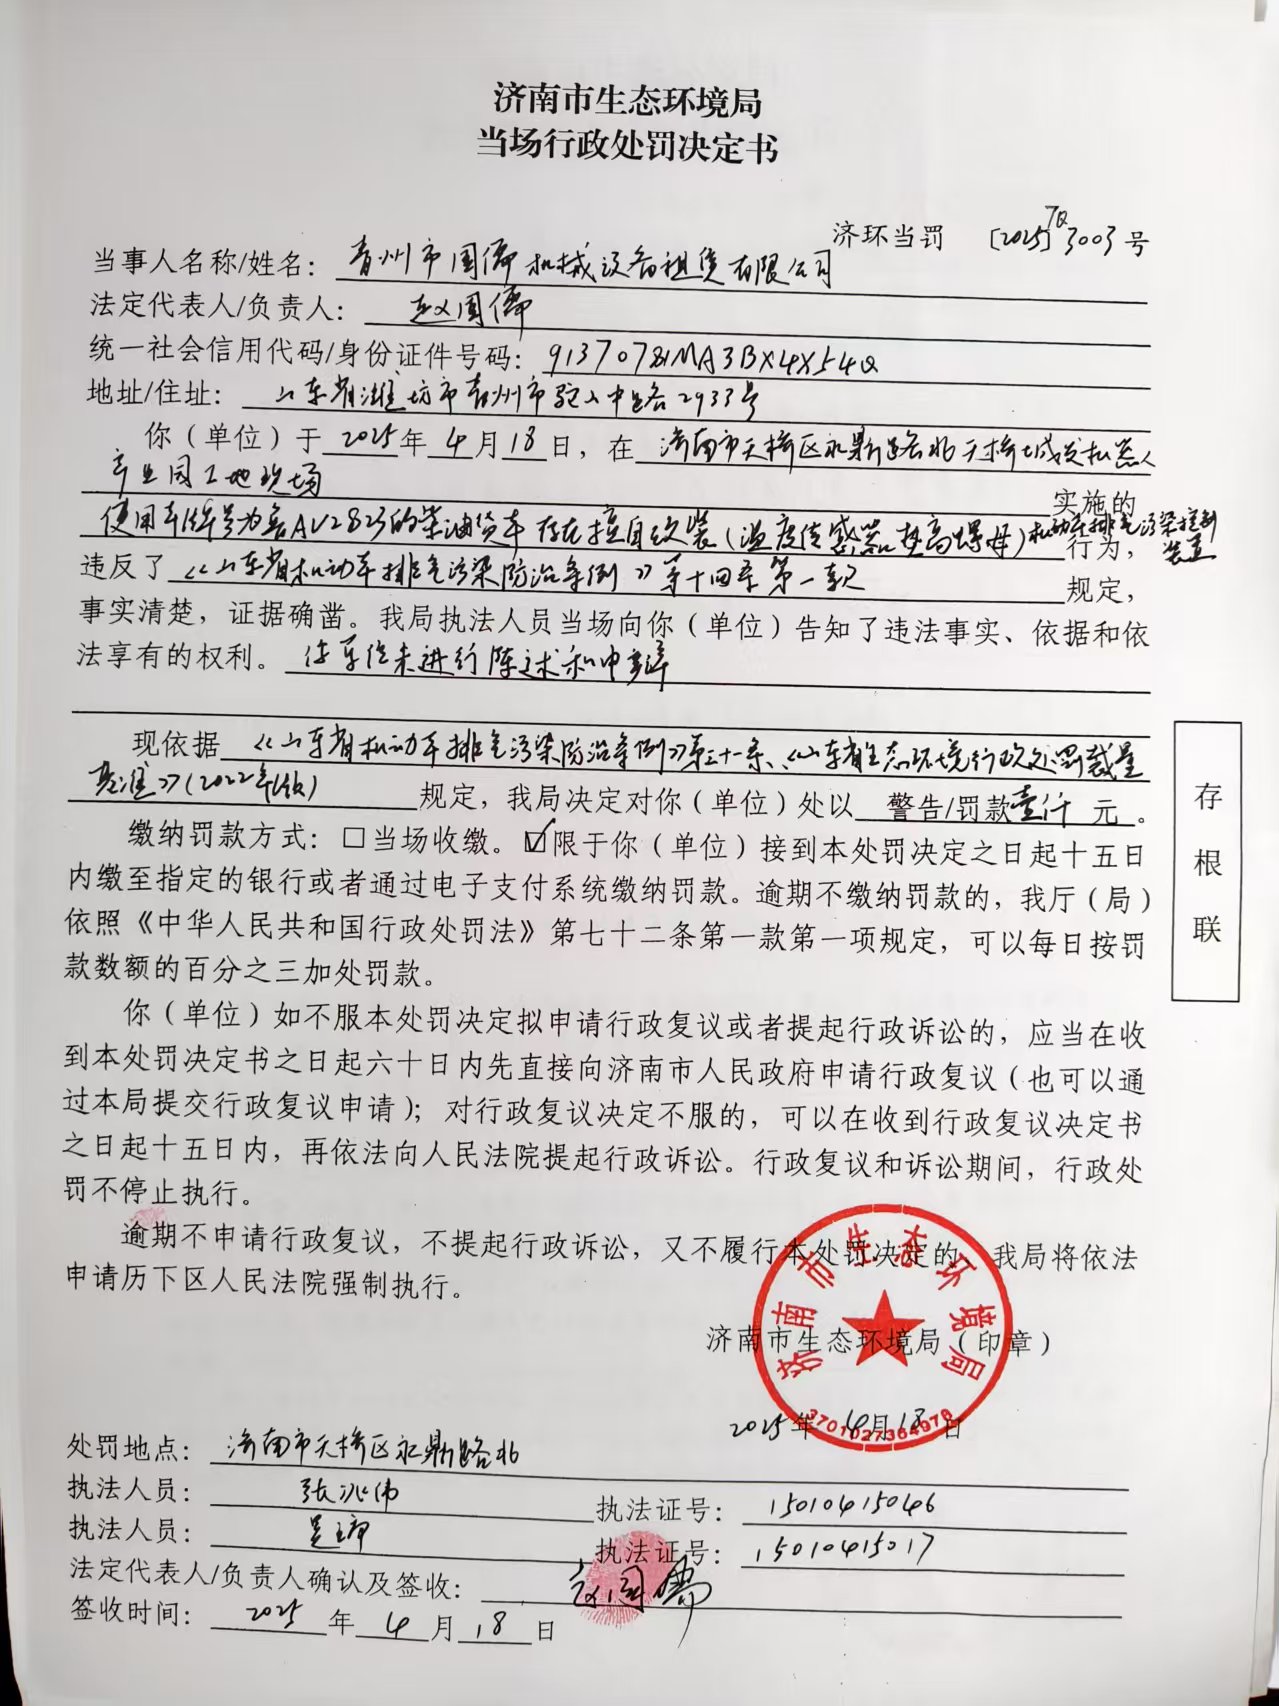 济南市生态环境局
当场行政处罚决定书
济环当罚 〔2025〕TQ3003号
当事人名称/姓名：青州市国儒机械设备租赁有限公司
法定代表人/负责人：赵国儒
统一社会信用代码/身份证件号码：91370781MA3BX4X54Q
地址/住址：山东省潍坊市青州市驼山中路2933号
你（单位）于2025年4月18日，在济南市天桥区永鼎路北天桥城发机器人
产业园工地现场 实施的
使用车牌号为鲁AV2823的柴油货车存在擅自改装（温度传感器垫高螺母）机动车排气污染控制装置行为，
违反了《山东省机动车排气污染防治条例》第十四条第一款 规定，
事实清楚，证据确凿。我局执法人员当场向你（单位）告知了违法事实、依据和依
法享有的权利。你单位未进行陈述和申辩
现依据《山东省机动车排气污染防治条例》第三十一条、《山东省生态环境行政处罚裁量
基准》（2022年版）规定，我局决定对你（单位）处以 警告/罚款壹仟 元。
缴纳罚款方式：□当场收缴。☑限于你（单位）接到本处罚决定之日起十五日
内缴至指定的银行或者通过电子支付系统缴纳罚款。逾期不缴纳罚款的，我厅（局）
依照《中华人民共和国行政处罚法》第七十二条第一款第一项规定，可以每日按罚
款数额的百分之三加处罚款。
你（单位）如不服本处罚决定拟申请行政复议或者提起行政诉讼的，应当在收
到本处罚决定书之日起六十日内先直接向济南市人民政府申请行政复议（也可以通
过本局提交行政复议申请）；对行政复议决定不服的，可以在收到行政复议决定书
之日起十五日内，再依法向人民法院提起行政诉讼。行政复议和诉讼期间，行政处
罚不停止执行。
逾期不申请行政复议，不提起行政诉讼，又不履行本处罚决定的，我局将依法
申请历下区人民法院强制执行。
济南市生态环境局（印章）
2025年4月18日
济南市生态环境局
3701027364978
存根联
处罚地点：济南市天桥区永鼎路北
执法人员：张兆伟 执法证号：15010415046
执法人员： 执法证号：15010415017
法定代表人/负责人确认及签收：赵国儒
签收时间：2025年4月18日